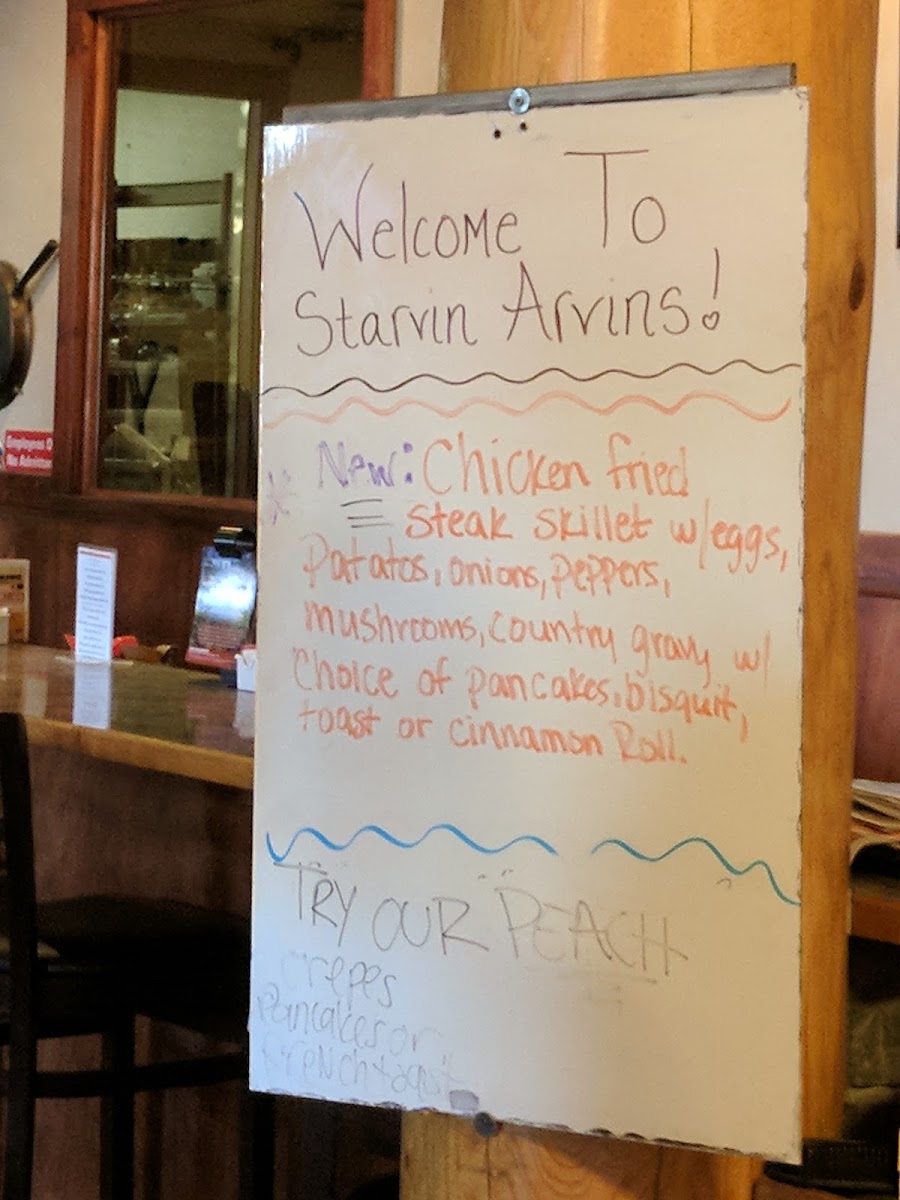 Welcome To
Starvin Arvins!
New: Chicken fried
steak skillet w/eggs,
Patatos, onions, peppers,
mushrooms, country gravy w/
Choice of pancakes, bisquit,
toast or cinnamon Roll.
TRY OUR "PEACH"
crepes
Pancakes or
french toast
Employees O
No Admittan